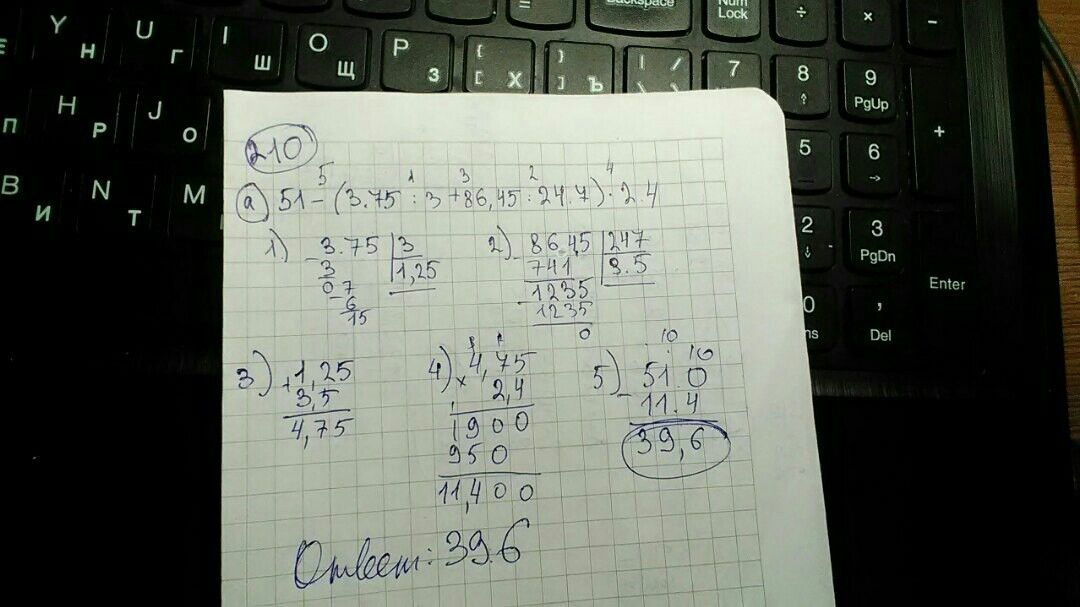 Backspace
Num Lock
÷
×
−
Y Н
U Г
I Ш
O Щ
P З
{ [ Х
} ] Ъ
| \ /
7
8
9 PgUp
+
П
H Р
J О
5
6
В
N Т
M
И
Ь
2
3 PgDn
Enter
0
, Del
210
5 1 3 2 4
а) 51 - (3.75 : 3 + 86,45 : 24.7) · 2.4
1) 3.75 | 3
3 | 1,25
07
6
15
2) 86 4,5 | 247
741 | 3.5
1235
1235
0
3) + 1,25
3,5
4,75
4) × 4,75
2,4
1900
950
11,400
10 10
5) - 51.0
11.4
39,6
Ответ: 39.6